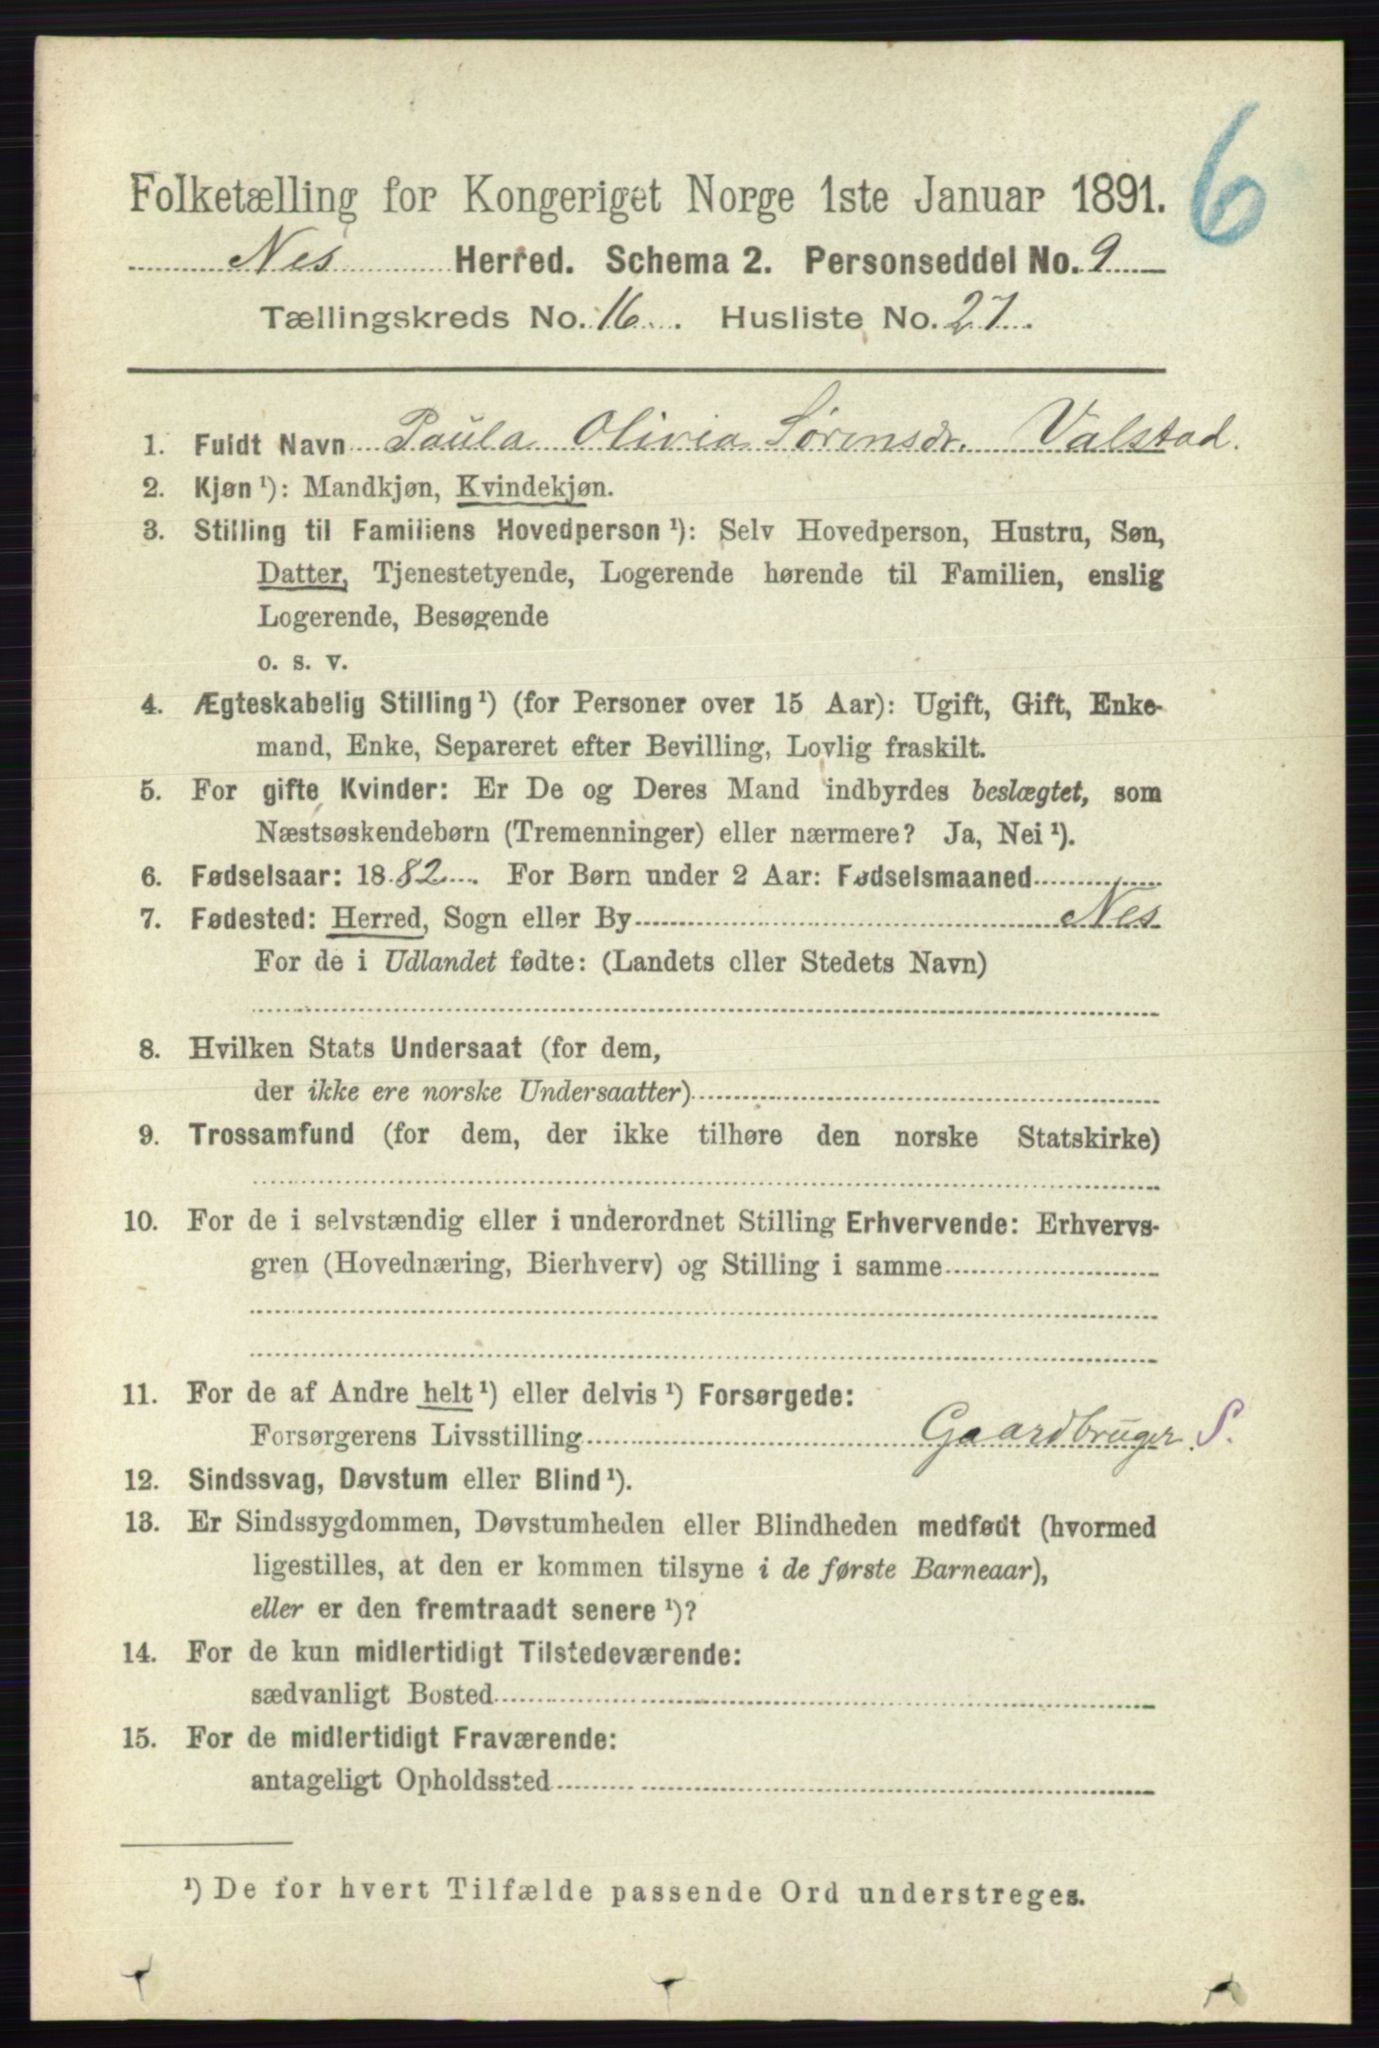 6
Folketælling for Kongeriget Norge 1ste Januar 1891.
Nes Herred. Schema 2. Personseddel No. 9
Tællingskreds No. 16. Husliste No. 27.
1. Fuldt Navn Paula Olivia Sørensdr. Valstad.
2. Kjøn ¹): Mandkjøn, Kvindekjøn.
3. Stilling til Familiens Hovedperson ¹): Selv Hovedperson, Hustru, Søn,
Datter, Tjenestetyende, Logerende hørende til Familien, enslig
Logerende, Besøgende
o. s. v.
4. Ægteskabelig Stilling ¹) (for Personer over 15 Aar): Ugift, Gift, Enke-
mand, Enke, Separeret efter Bevilling, Lovlig fraskilt.
5. For gifte Kvinder: Er De og Deres Mand indbyrdes beslægtet, som
Næstsøskendebørn (Tremenninger) eller nærmere? Ja, Nei ¹).
6. Fødselsaar: 1882. For Børn under 2 Aar: Fødselsmaaned
7. Fødested: Herred, Sogn eller By Nes
For de i Udlandet fødte: (Landets eller Stedets Navn)
8. Hvilken Stats Undersaat (for dem,
der ikke ere norske Undersaatter)
9. Trossamfund (for dem, der ikke tilhøre den norske Statskirke)
10. For de i selvstændig eller i underordnet Stilling Erhvervende: Erhvervs-
gren (Hovednæring, Bierhverv) og Stilling i samme
11. For de af Andre helt ¹) eller delvis ¹) Forsørgede:
Forsørgerens Livsstilling Gaardbruger S.
12. Sindssvag, Døvstum eller Blind ¹).
13. Er Sindssygdommen, Døvstumheden eller Blindheden medfødt (hvormed
ligestilles, at den er kommen tilsyne i de første Barneaar),
eller er den fremtraadt senere ¹)?
14. For de kun midlertidigt Tilstedeværende:
sædvanligt Bosted
15. For de midlertidigt Fraværende:
antageligt Opholdssted
¹) De for hvert Tilfælde passende Ord understreges.